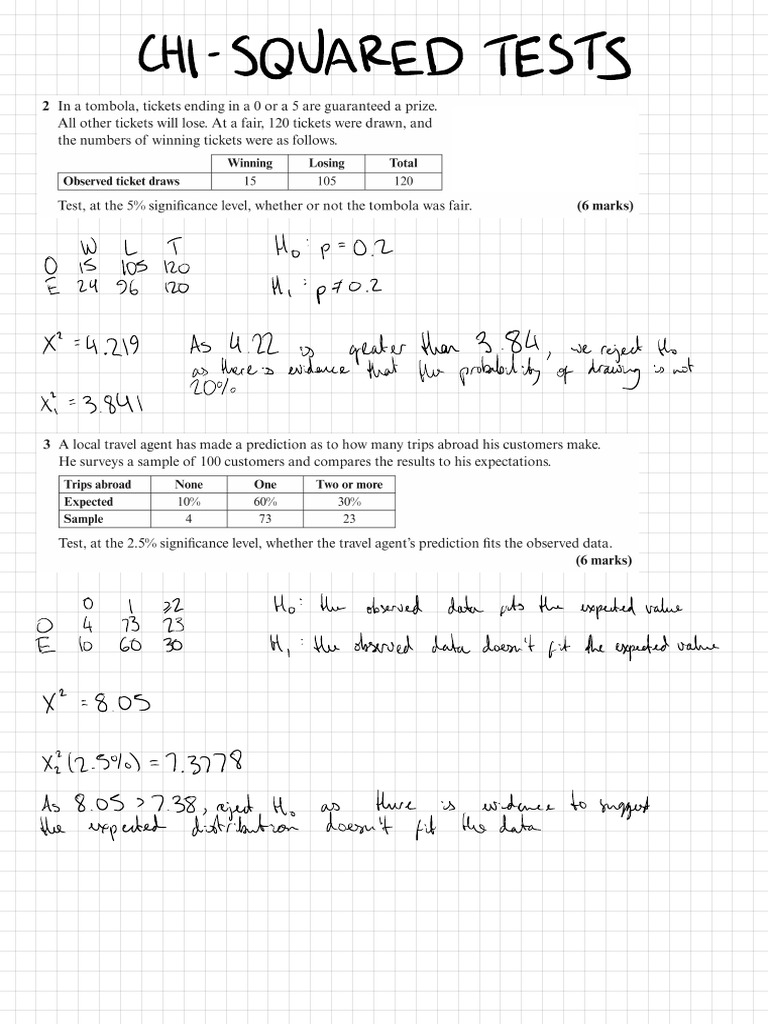 CHI-SQUARED TESTS
2 In a tombola, tickets ending in a 0 or a 5 are guaranteed a prize.
All other tickets will lose. At a fair, 120 tickets were drawn, and
the numbers of winning tickets were as follows.
Winning Losing Total
Observed ticket draws 15 105 120
Test, at the 5% significance level, whether or not the tombola was fair. (6 marks)
W L T
O 15 105 120
E 24 96 120
H₀ : p = 0.2
H₁ : p ≠ 0.2
X² = 4.219
X²₁ = 3.841
As 4.22 is greater than 3.84, we reject H₀
as there is evidence that the probability of drawing is not
20%
3 A local travel agent has made a prediction as to how many trips abroad his customers make.
He surveys a sample of 100 customers and compares the results to his expectations.
Trips abroad None One Two or more
Expected 10% 60% 30%
Sample 4 73 23
Test, at the 2.5% significance level, whether the travel agent's prediction fits the observed data.
(6 marks)
0 1 ≥2
O 4 73 23
E 10 60 30
H₀ : the observed data fits the expected value
H₁ : the observed data doesn't fit the expected value
X² = 8.05
X²₂ (2.5%) = 7.3778
As 8.05 > 7.38, reject H₀ as there is evidence to suggest
the expected distribution doesn't fit the data